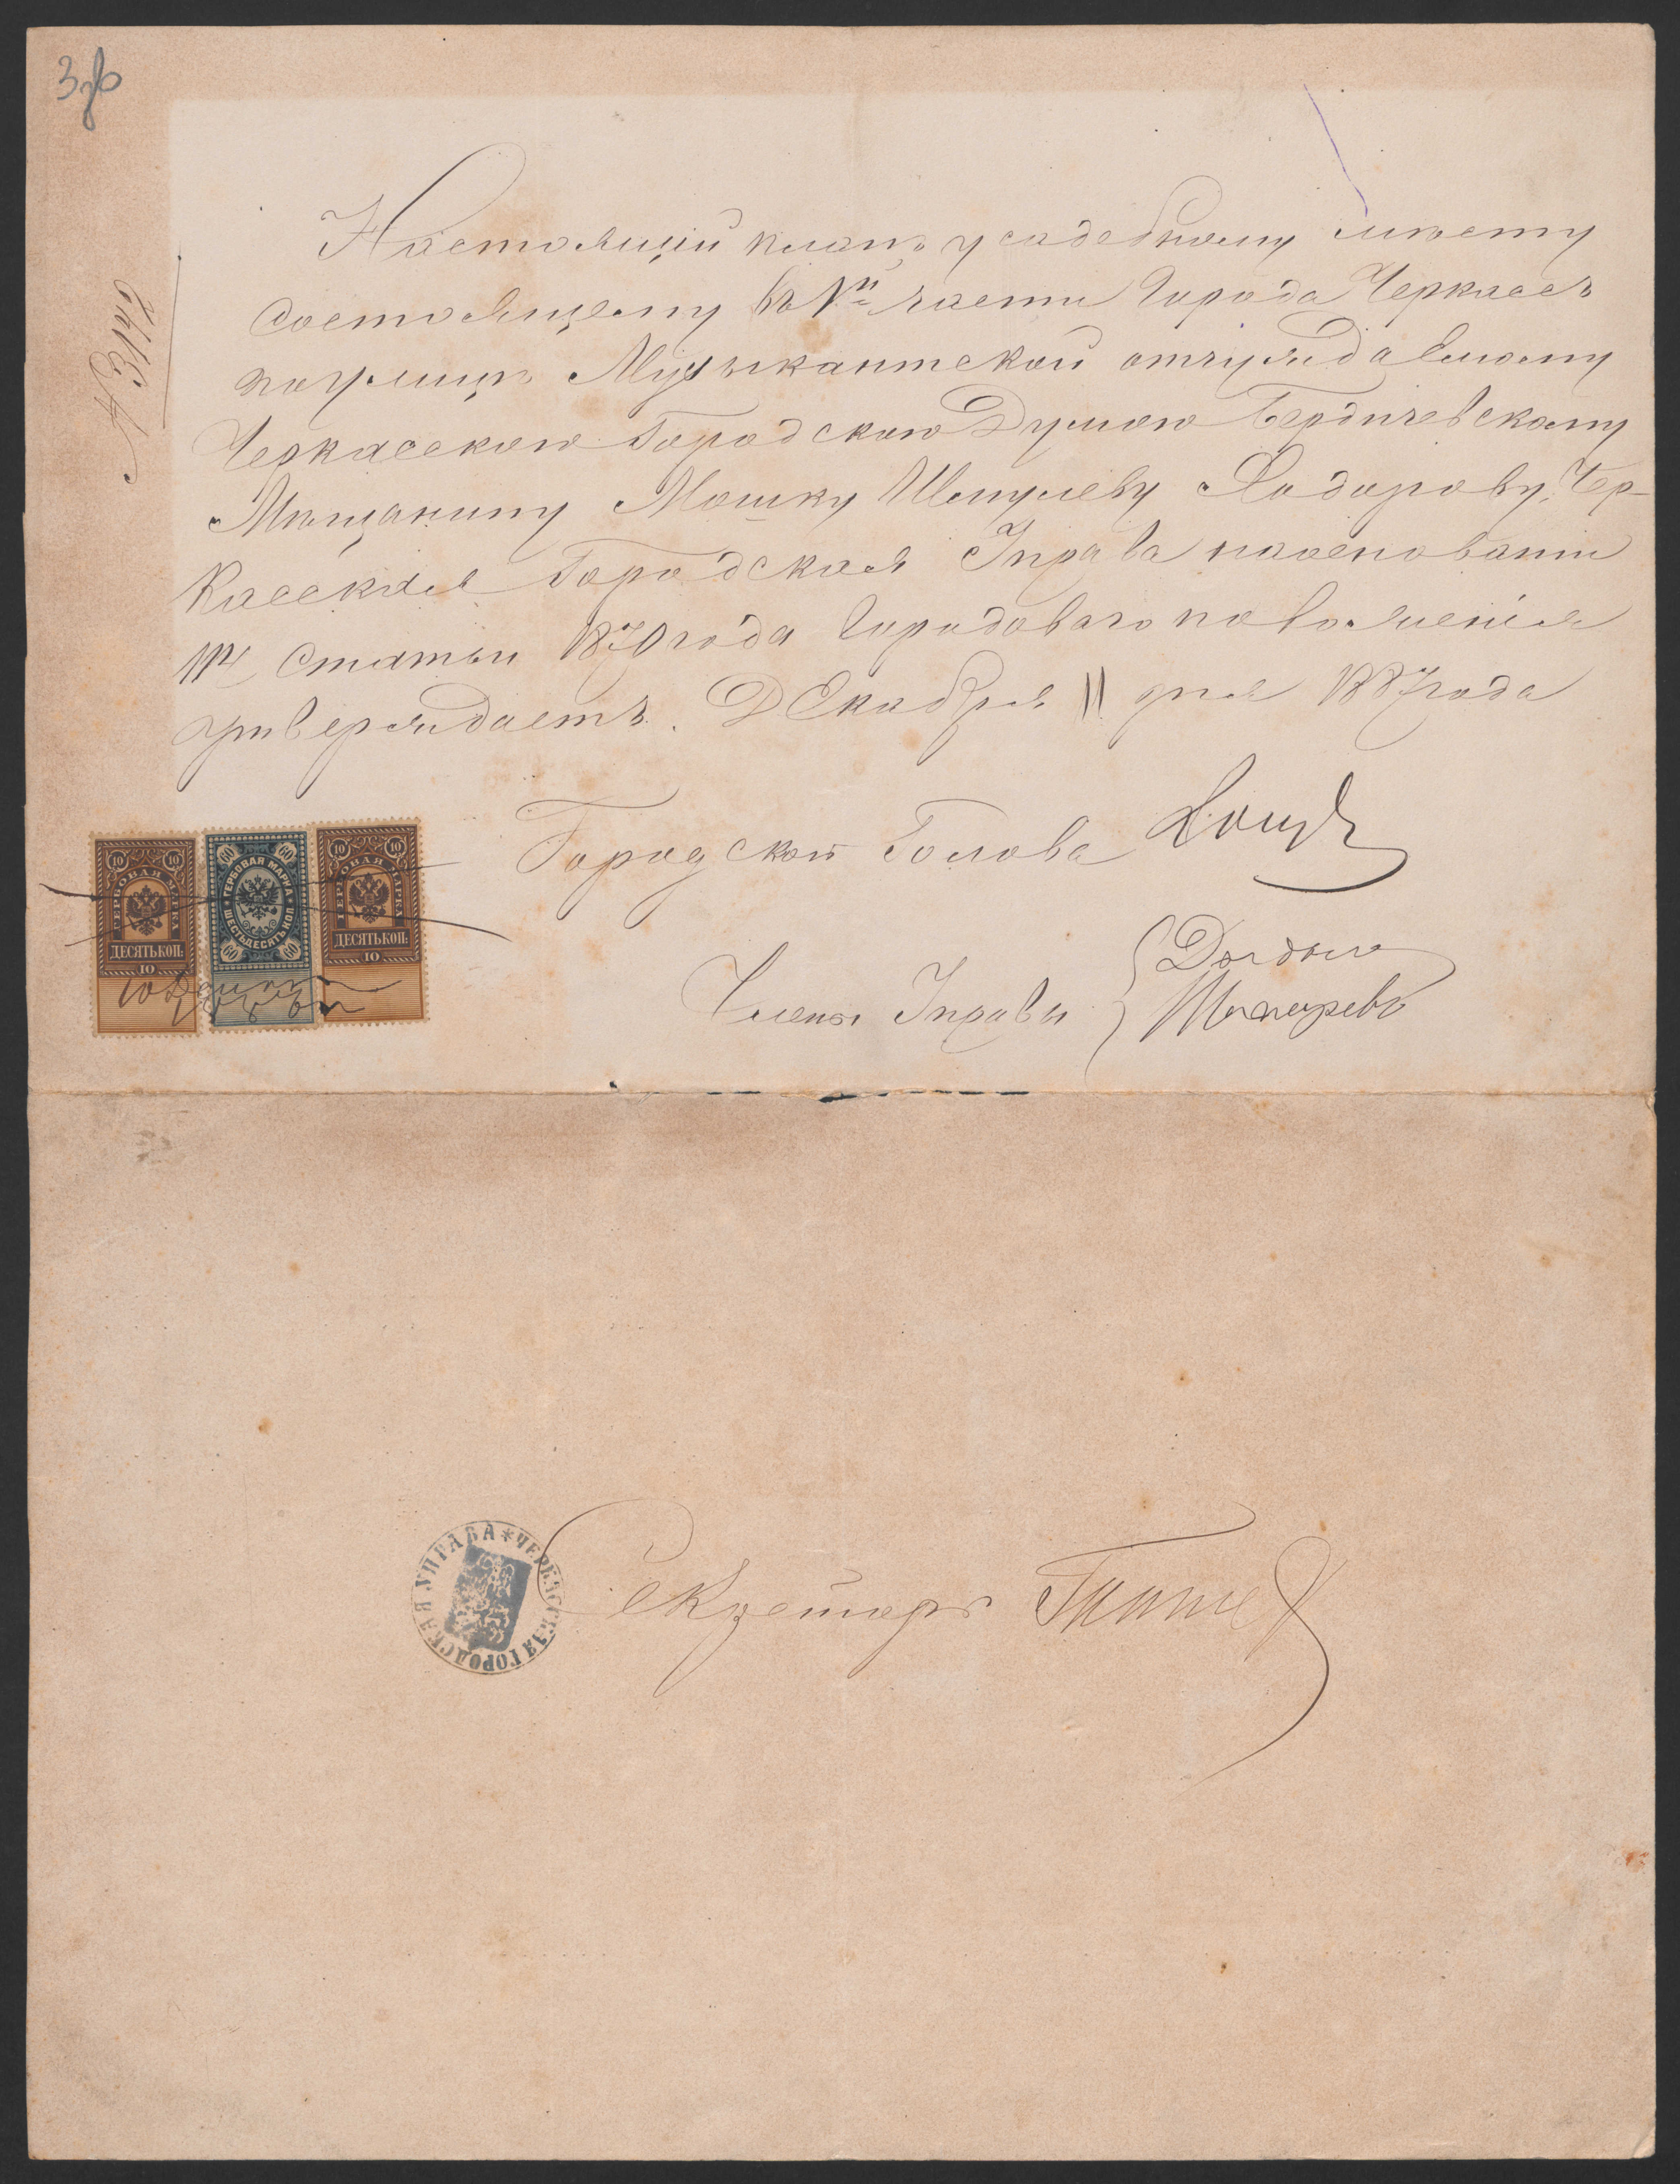 3 об
№ 3172
Настоящій планъ усадебному мѣсту
состоящему въ 1й части Города Черкассъ
по улицѣ Музыкантской отчуждаемому
Черкасскою Городскою Думою Бердичевскому
Мѣщанину Мошку Шмулеву Ходорову, Чер-
касская Городская Управа на основаніи
114 статьи 1870 года Городоваго положенія
утверждаетъ. Декабря 11 дня 1887 года
Городской Голова
Члены Управы
ГЕРБОВАЯ МАРКА
10 10
ДЕСЯТЬ КОП.
10
60 60
ГЕРБОВАЯ МАРКА
ШЕСТЬДЕСЯТЪ КОП.
60 60
ГЕРБОВАЯ МАРКА
10 10
ДЕСЯТЬ КОП.
10
Секретарь
ЧЕРКАССКАЯ ГОРОДСКАЯ УПРАВА